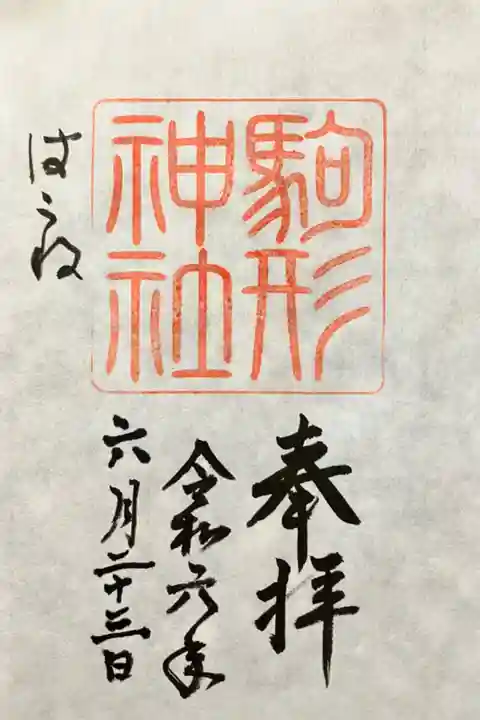 駒形
神社
奉拝
令和六年
六月二十三日
はこね